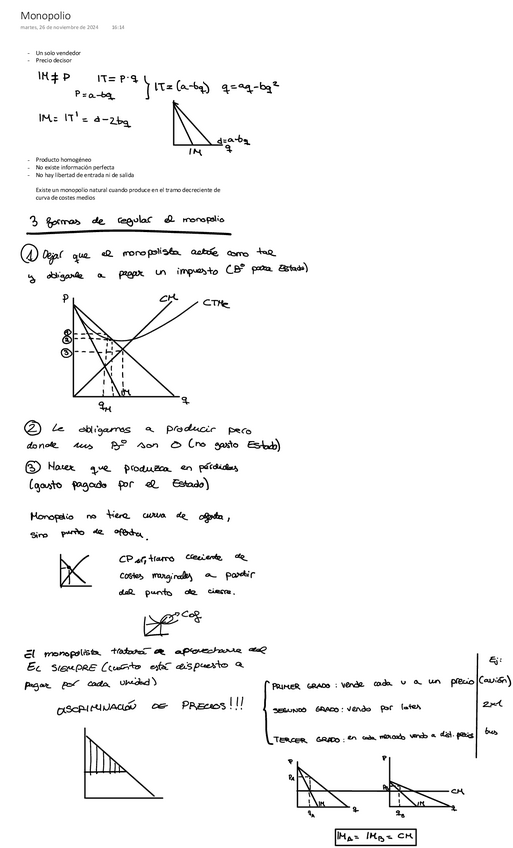 Monopolio
martes, 26 de noviembre de 2024 16:14
- Un solo vendedor
- Precio decisor
IM ≠ P IT = P·q
P = a-bq
IT = (a-bq) q = aq-bq²
IM = IT' = a-2bq
d=a-bq
q
IM
- Producto homogéneo
- No existe información perfecta
- No hay libertad de entrada ni de salida
Existe un monopolio natural cuando produce en el tramo decreciente de
curva de costes medios
3 formas de regular el monopolio
① Dejar que el monopolista actúe como tal
y obligarle a pagar un impuesto (Bº para Estado)
P
CM
CTMe
①
②
③
IM
qM
q
② Le obligamos a producir pero
donde sus Bº son 0 (no gasto Estado)
③ Hacer que produzca en pérdidas
(gasto pagado por el Estado)
Monopolio no tiene curva de oferta,
sino punto de oferta.
CP sí, tramo creciente de
costes marginales a partir
del punto de cierre.
Cof
El monopolista tratará de aprovecharse del
EC SIEMPRE (cuánto está dispuesto a
pagar por cada unidad)
DISCRIMINACIÓN DE PRECIOS!!!
Ej:
PRIMER GRADO: vende cada u a un precio (avión)
SEGUNDO GRADO: vendo por lotes 2x1
TERCER GRADO: en cada mercado vendo a dist. precio bus
P
PA
IM
qA
q
P
PB
CM
IM
qB
q
IMA = IMB = CM